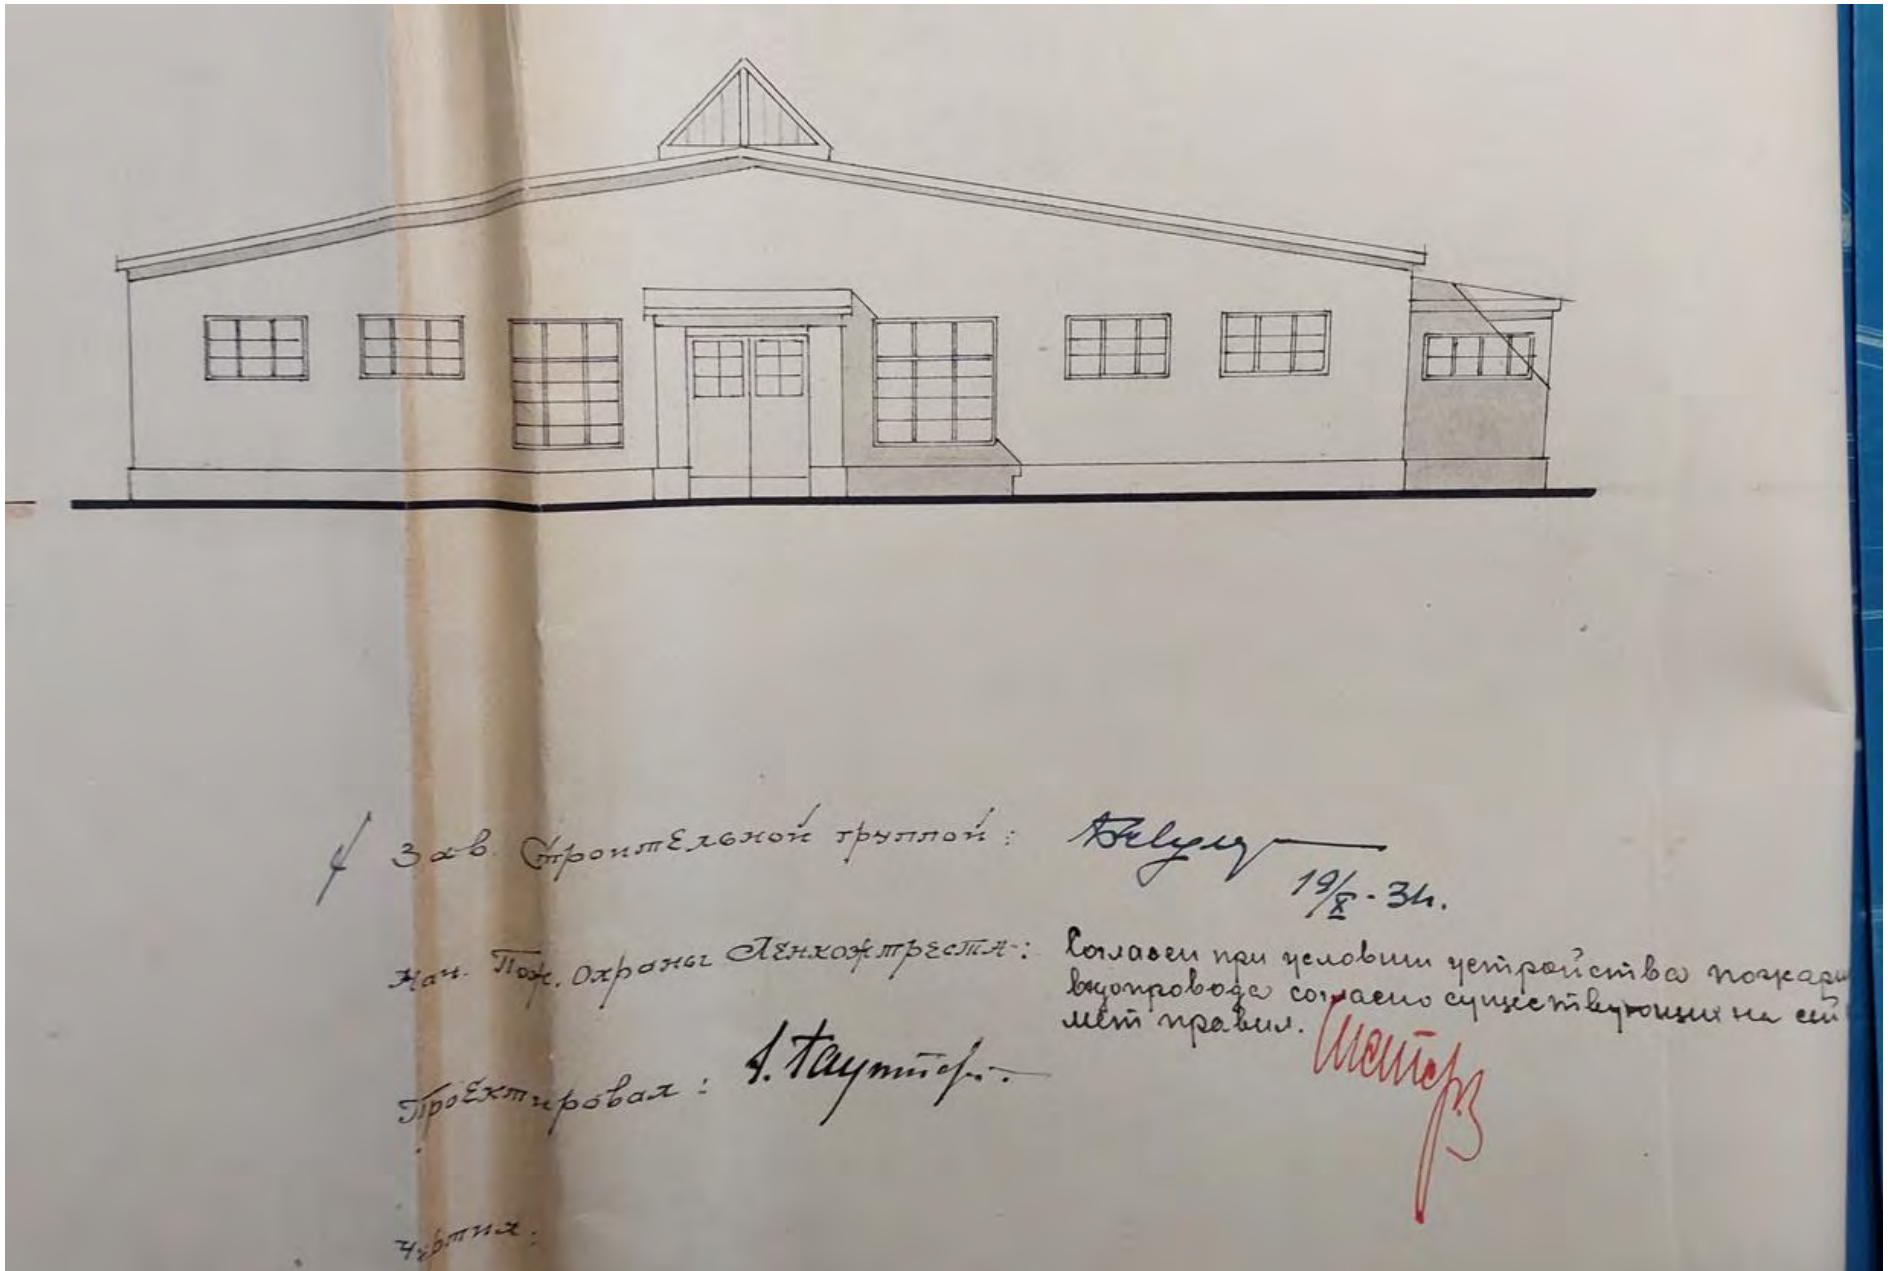 Зав. Строительной группой:
19/X - 34.
Нач. Пож. Охраны Ленкожтреста:
Согласен при условии устройства пожарн
водопровода согласно существующих на сей
мет правил.
Проектировал:
Чертил: